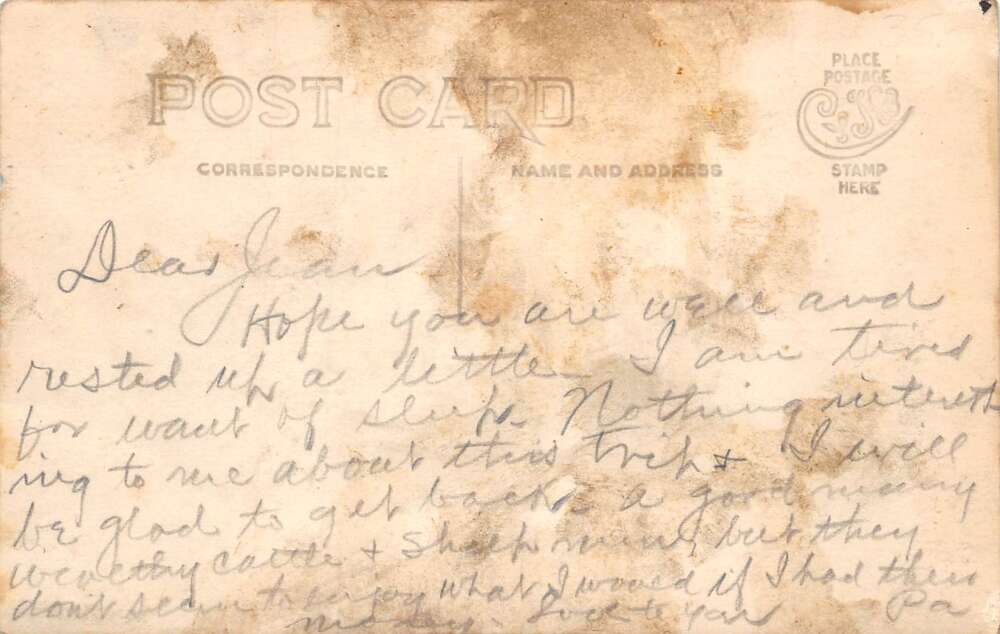 POST CARD
PLACE
POSTAGE
STAMP
HERE
CORRESPONDENCE
NAME AND ADDRESS
Dear Jean
Hope you are well and
rested up a little I am tired
for want of sleep. Nothing interest
ing to me about this trip & I will
be glad to get back. a good many
wealthy cattle & sheep men, but they
don't seem to enjoy what I would if I had their
money. Love to you Pa